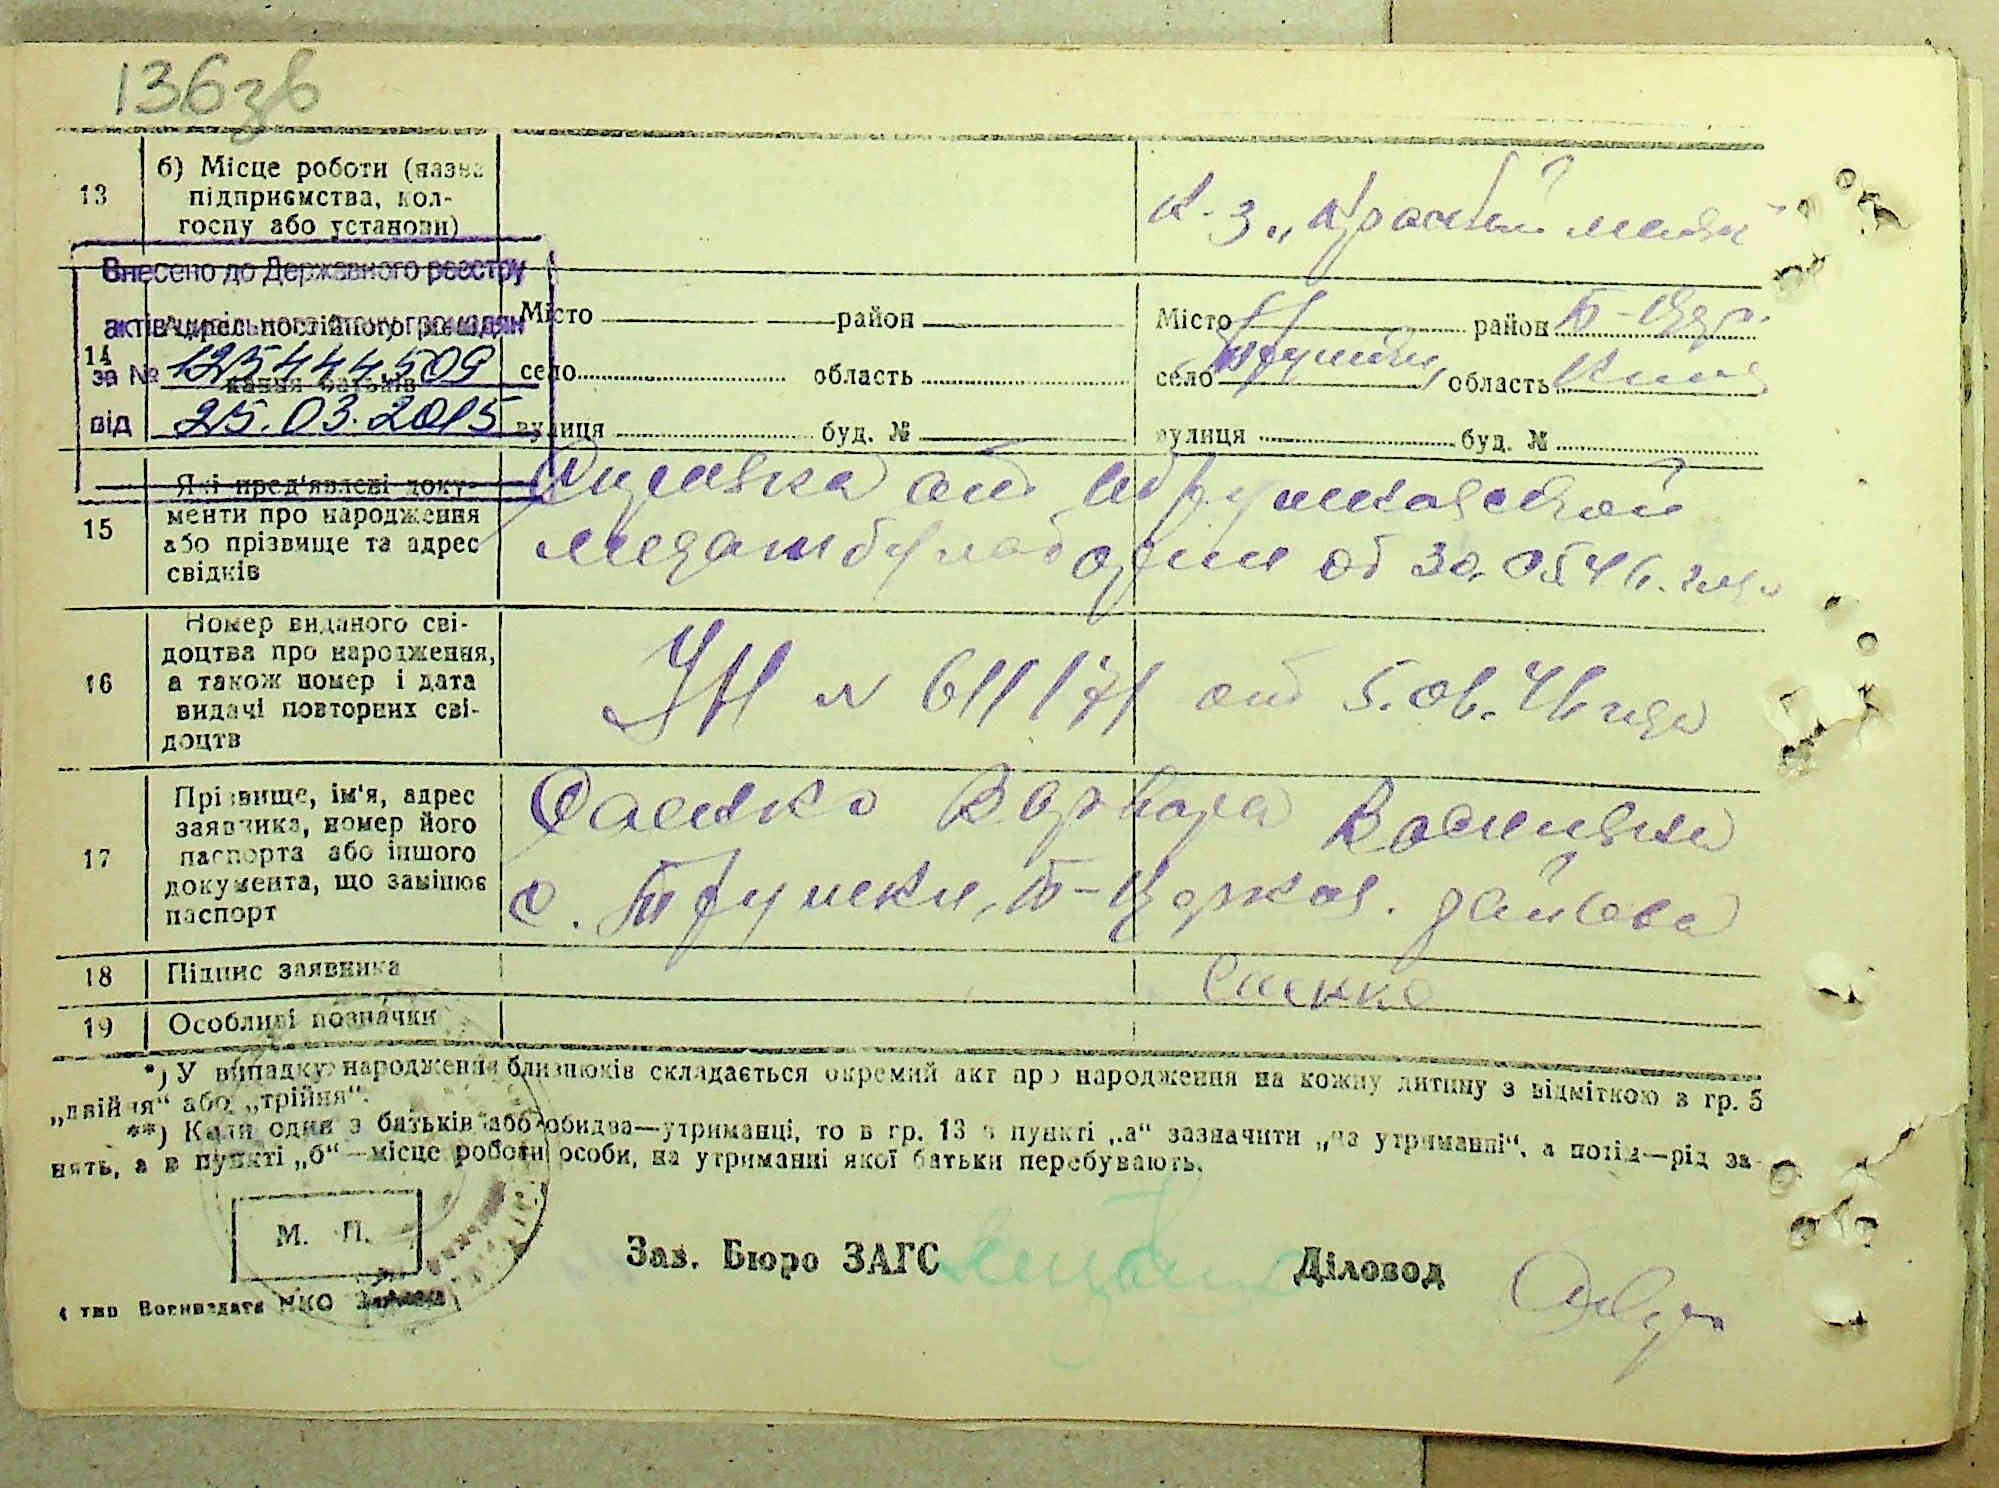 136зв
13
б) Місце роботи (назва
підприємства, кол-
госпу або установи)
К-з „Красный маяк"
Внесено до Державного реєстру
14
Адрес постійного
актів цивільного стану громадян
за № 125444509
від 25.03.2015
Місто район
село область
вулиця буд. №
Місто район Б-Церк.
село Трушки, область Киев
вулиця буд. №
15
Які пред'явлені доку-
менти про народження
або прізвище та адрес
свідків
Справка от Трушковской
от 30.05 46 года
16
Номер виданого сві-
доцтва про народження,
а також номер і дата
видачі повторних сві-
доцтв
УН № 611171 от 5.06.46 года
17
Прізвище, ім'я, адрес
заявника, номер його
паспорта або іншого
документа, що замінює
паспорт
Сашко Варвара
с. Трушки, Б-Церков. района
18
Підпис заявника
Сашко
19
Особливі позначки
*) У випадку народження близнюків складається окремий акт про народження на кожну дитину з відміткою в гр. 5
„двійня“ або „трійня“.
**) Коли один з батьків або обидва—утриманці, то в гр. 13 в пункті „а“ зазначити „на утриманні“, а потім—рід за-
нять, а в пункті „б“—місце роботи особи, на утриманні якої батьки перебувають.
М. П.
Зав. Бюро ЗАГС
Діловод